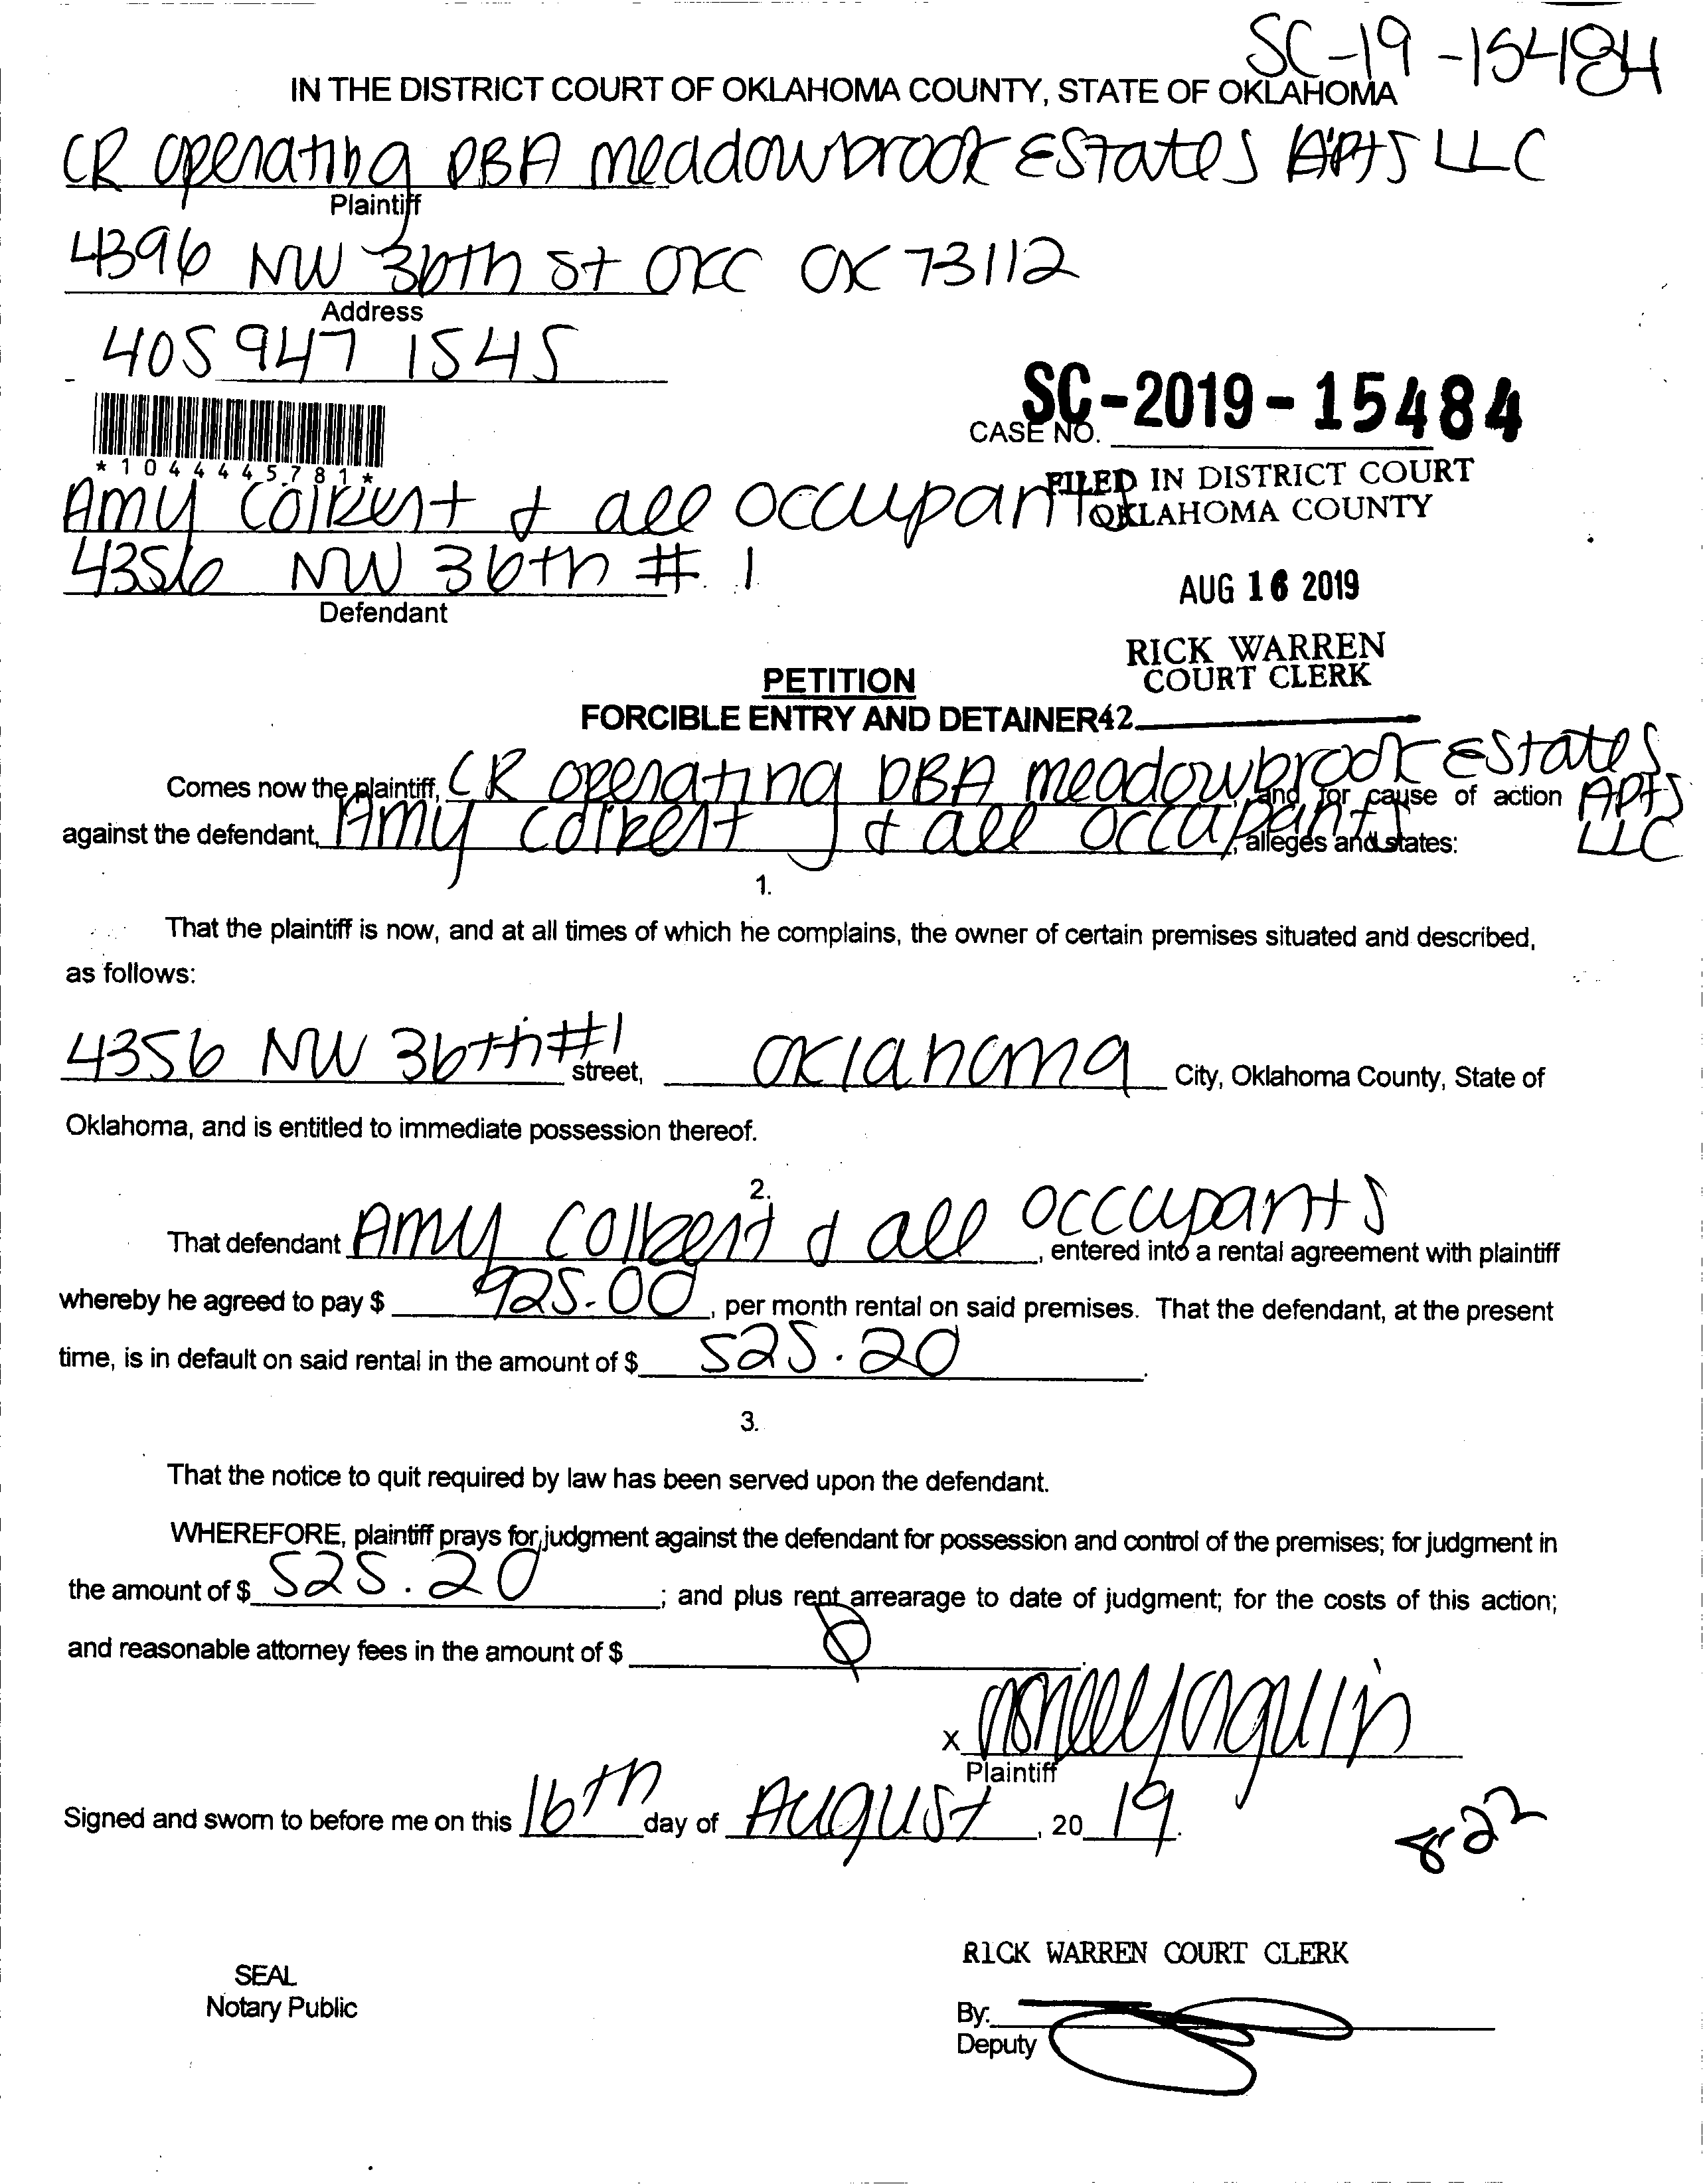 SC-19-15484
IN THE DISTRICT COURT OF OKLAHOMA COUNTY, STATE OF OKLAHOMA
CR operating DBA meadowbrook Estates APTS LLC
Plaintiff
4396 NW 36th St OKC OK 73112
Address
405 947 1545
SC-2019-15484
CASE NO.
*1044445781*
FILED IN DISTRICT COURT
OKLAHOMA COUNTY
Amy Colbert & all occupants
4356 NW 36th # 1
Defendant
AUG 16 2019
RICK WARREN
COURT CLERK
PETITION
FORCIBLE ENTRY AND DETAINER42
Comes now the plaintiff, CR operating DBA meadowbrook Estates APTS LLC, and for cause of action
against the defendant, Amy Colbert & all occupants, alleges and states:
1.
That the plaintiff is now, and at all times of which he complains, the owner of certain premises situated and described,
as follows:
4356 NW 36th #1 street, Oklahoma City, Oklahoma County, State of
Oklahoma, and is entitled to immediate possession thereof.
2.
That defendant Amy Colbert & all occupants, entered into a rental agreement with plaintiff
whereby he agreed to pay $ 925.00, per month rental on said premises. That the defendant, at the present
time, is in default on said rental in the amount of $ 525.20.
3.
That the notice to quit required by law has been served upon the defendant.
WHEREFORE, plaintiff prays for judgment against the defendant for possession and control of the premises; for judgment in
the amount of $ 525.20; and plus rent arrearage to date of judgment; for the costs of this action;
and reasonable attorney fees in the amount of $ 0.
X
Plaintiff
Signed and sworn to before me on this 16th day of August, 20 19.
8-22
RICK WARREN COURT CLERK
SEAL
Notary Public
By:
Deputy